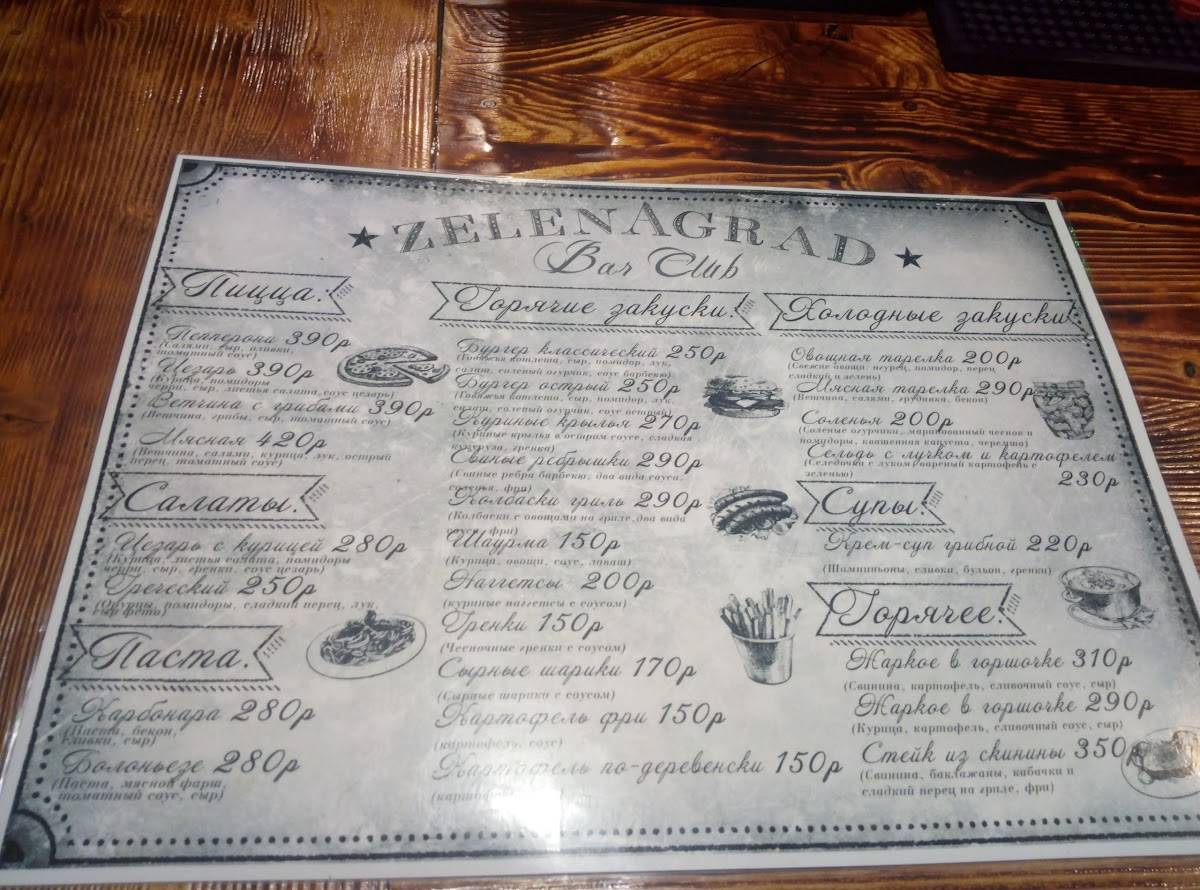 ZELENAGRAD
Bar Club
Пицца:
Пепперони 390р
(Салями, сыр, оливки,
томатный соус)
Цезарь 390р
(Курица, помидоры
черри, сыр, листья салата, соус цезарь)
Ветчина с грибами 390р
(Ветчина, грибы, сыр, томатный соус)
Мясная 420р
(Ветчина, салями, курица, лук, острый
перец, томатный соус)
Салаты:
Цезарь с курицей 280р
(Курица, листья салата, помидоры
черри, сыр, гренки, соус цезарь)
Греческий 250р
(Огурцы, помидоры, сладкий перец, лук,
сыр фета)
Паста:
Карбонара 280р
(Паста, бекон,
сливки, сыр)
Болоньезе 280р
(Паста, мясной фарш,
томатный соус, сыр)
Горячие закуски:
Бургер классический 250р
(Говяжья котлета, сыр, помидор, лук,
салат, соленый огурчик, соус барбекю)
Бургер острый 250р
(Говяжья котлета, сыр, помидор, лук,
салат, соленый огурчик, соус острый)
Куриные крылья 270р
(Куриные крылья в остром соусе, сладкая
кукуруза, гренка)
Свиные ребрышки 290р
(Свиные ребра барбекю, два вида соуса,
соленья, фри)
Колбаски гриль 290р
(Колбаски с овощами на гриле, два вида
соуса, фри)
Шаурма 150р
(Курица, овощи, соус, лаваш)
Наггетсы 200р
(куриные наггетсы с соусом)
Гренки 150р
(Чесночные гренки с соусом)
Сырные шарики 170р
(Сырные шарики с соусом)
Картофель фри 150р
(картофель, соус)
Картофель по-деревенски 150р
Холодные закуски:
Овощная тарелка 200р
(Свежие овощи: огурец, помидор, перец
сладкий и зелень)
Мясная тарелка 290р
(Ветчина, салями, грудинка, бекон)
Соленья 200р
(Соленые огурчики, маринованный чеснок и
помидоры, квашенная капуста, черемша)
Сельдь с лучком и картофелем
230р
(Селедочка с луком, вареный картофель с
зеленью)
Супы:
Крем-суп грибной 220р
(Шампиньоны, сливки, бульон, гренки)
Горячее:
Жаркое в горшочке 310р
(Свинина, картофель, сливочный соус, сыр)
Жаркое в горшочке 290р
(Курица, картофель, сливочный соус, сыр)
Стейк из скинины 350р
(Свинина, баклажаны, кабачки и
сладкий перец на гриле, фри)